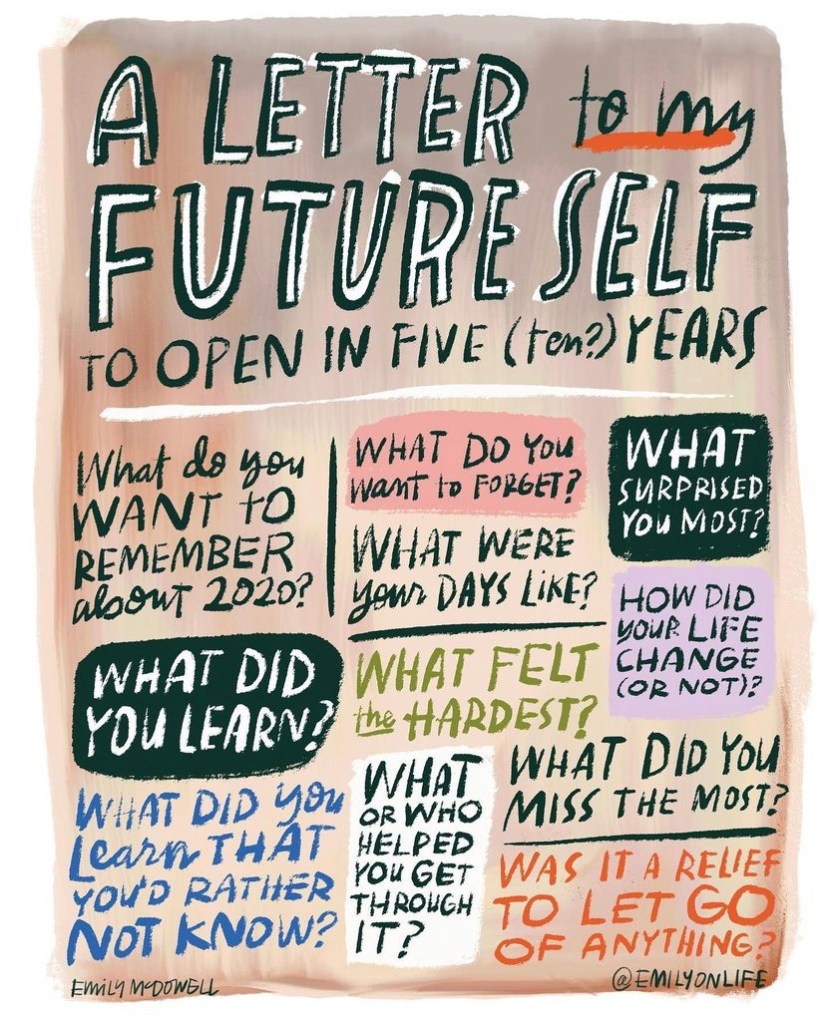 A LETTER to my
FUTURE SELF
TO OPEN IN FIVE (ten?) YEARS
What do you
WANT TO
REMEMBER
about 2020?
WHAT DO YOU
Want to FORGET?
WHAT
SURPRISED
YOU MOST?
WHAT WERE
your DAYS LIKE?
HOW DID
YOUR LIFE
CHANGE
(OR NOT)?
WHAT DID
YOU LEARN?
WHAT FELT
the HARDEST?
WHAT DID YOU
MISS THE MOST?
WHAT DID you
Learn THAT
YOU'D RATHER
NOT KNOW?
WHAT
OR WHO
HELPED
YOU GET
THROUGH
IT?
WAS IT A RELIEF
TO LET GO
OF ANYTHING?
EMILY McDOWELL
@EMILYONLIFE